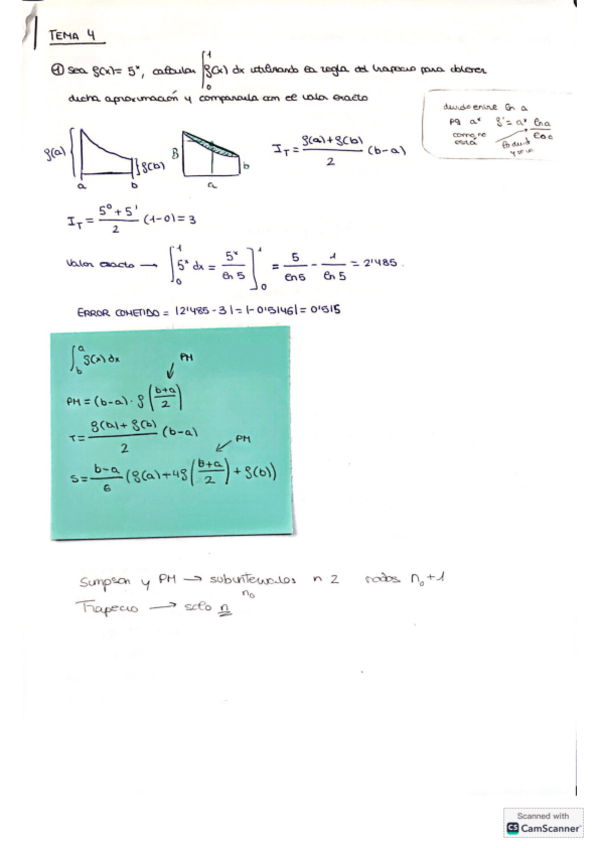 TEMA 4
① Sea f(x) = 5ˣ, calcular ∫₀¹ f(x) dx utilizando la regla del trapecio para obtener
dicha aproximación y compararla con el valor exacto
dividido entre ln a
pq aˣ f' = aˣ ln a
como no
está
f(a) f(b) a b
B b a
I_T = f(a) + f(b) / 2 (b-a)
I_T = 5⁰ + 5¹ / 2 (1-0) = 3
Valor exacto → ∫₀¹ 5ˣ dx = 5ˣ / ln 5 ]₀¹ = 5 / ln 5 - 1 / ln 5 = 2'485.
ERROR COMETIDO = |2'485 - 3| = |-0'5146| = 0'515
∫_b^a f(x) dx
PM
PM = (b-a) · f (b+a / 2)
T = f(a) + f(b) / 2 (b-a)
PM
S = b-a / 6 (f(a) + 4f (b+a / 2) + f(b))
Simpson y PM → subintervalos n 2 nodos n₀+1
n₀
Trapecio → solo n
Scanned with
CS CamScanner